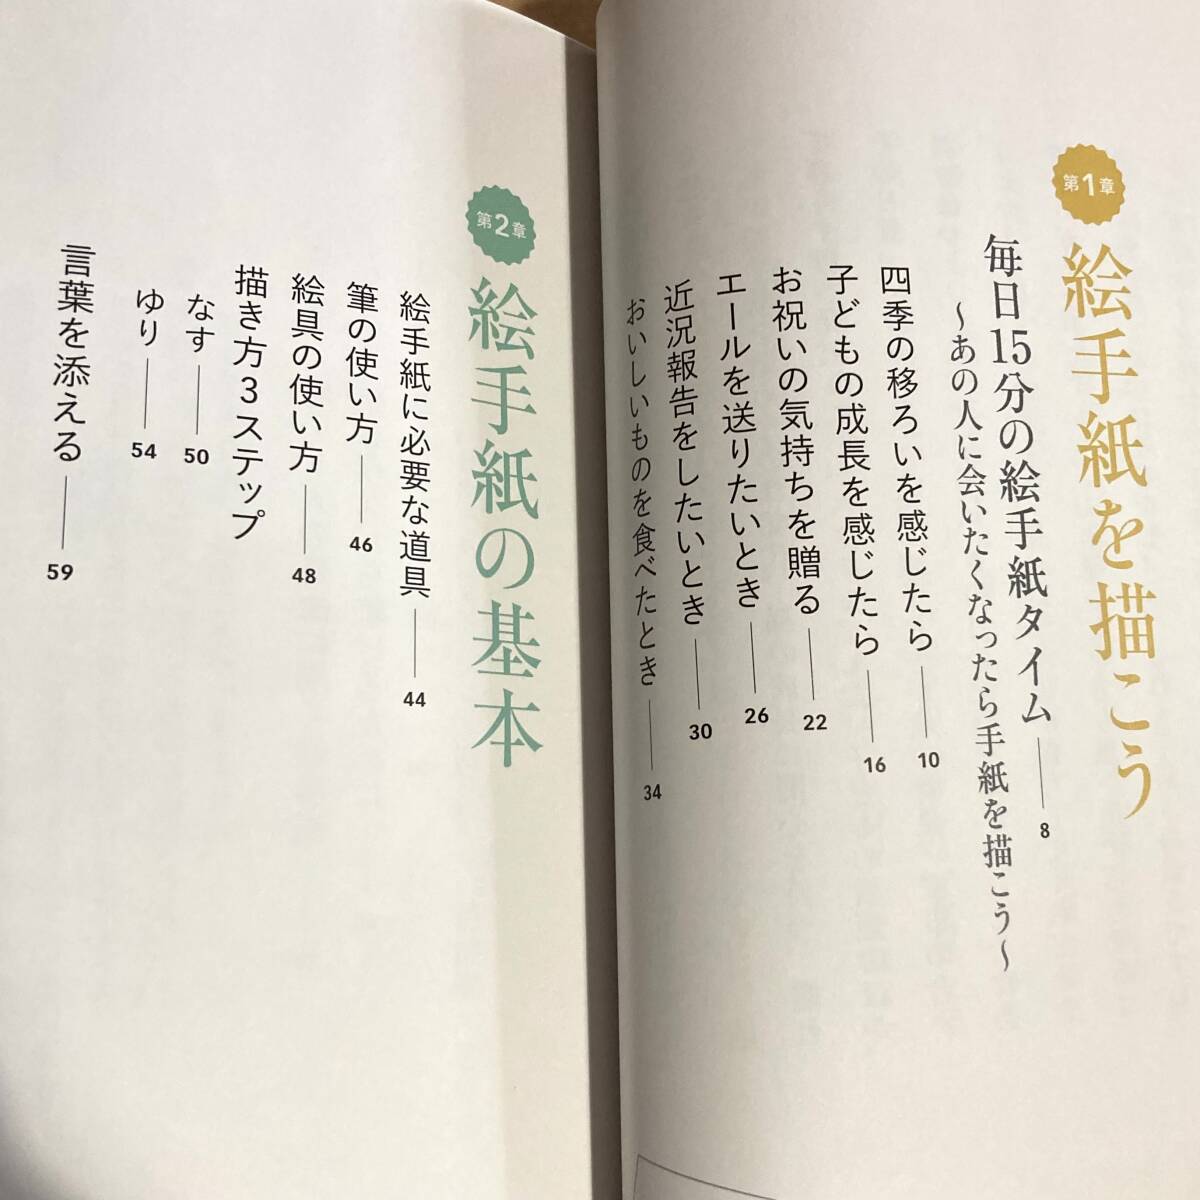 第1章
絵手紙を描こう
毎日15分の絵手紙タイム 8
～あの人に会いたくなったら手紙を描こう～
四季の移ろいを感じたら 10
子どもの成長を感じたら 16
お祝いの気持ちを贈る 22
エールを送りたいとき 26
近況報告をしたいとき 30
おいしいものを食べたとき 34
第2章
絵手紙の基本
絵手紙に必要な道具 44
筆の使い方 46
絵具の使い方 48
描き方3ステップ
なす 50
ゆり 54
言葉を添える 59